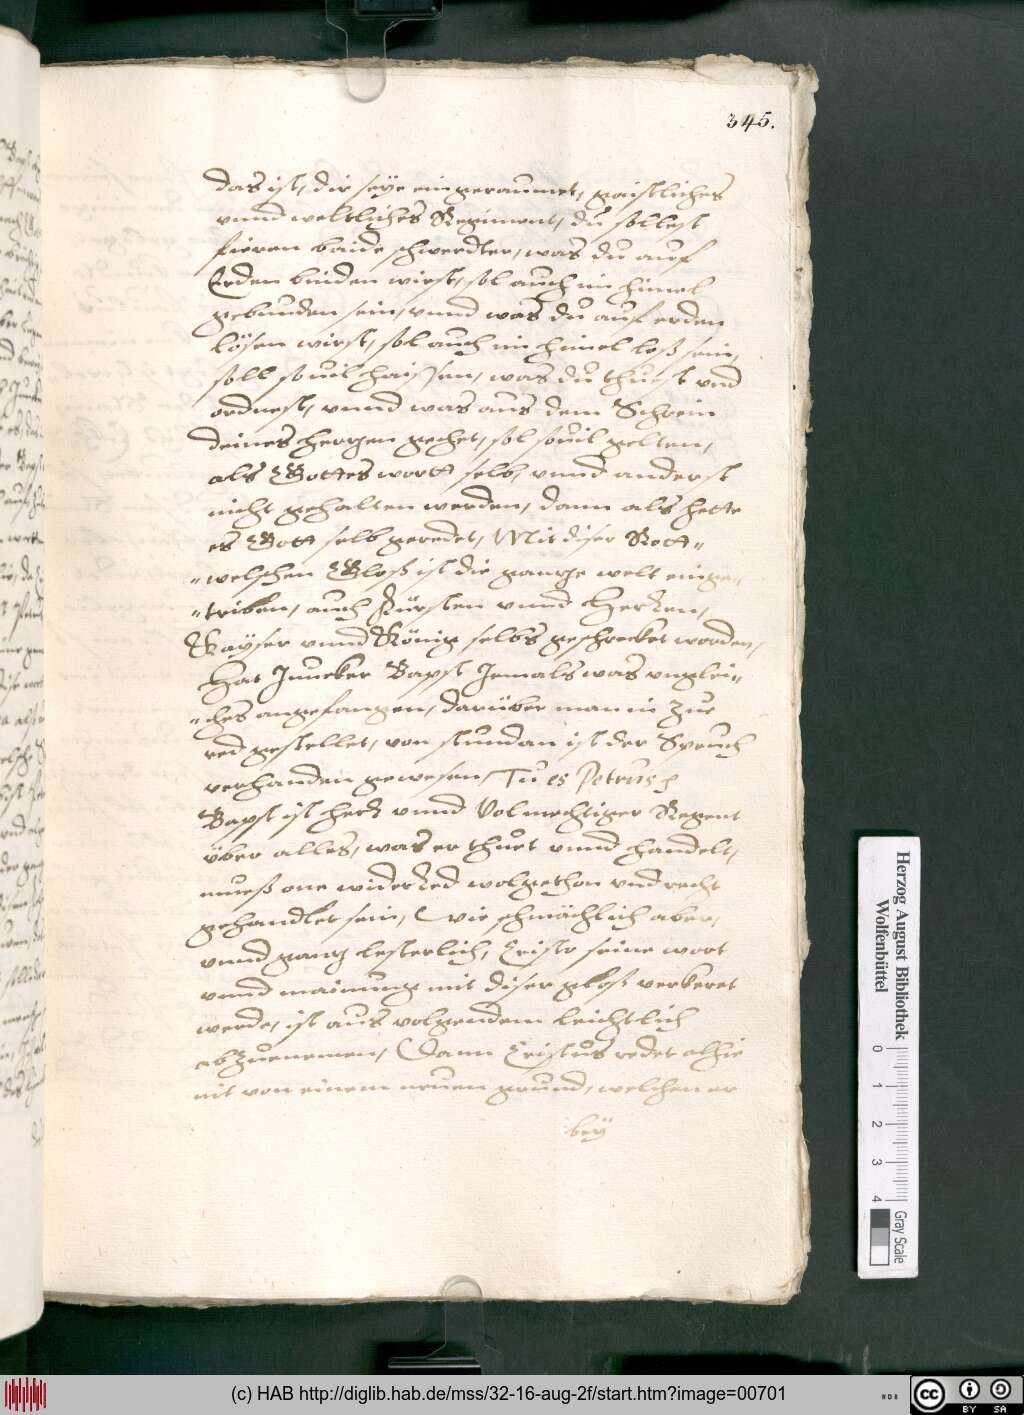 345.
das ist, dir seye eingeraumet, gaistliches
vnnd weltliches Regiment, du sollest
fieren baide schwerdter, was du auf
Erden binden wirst, sol auch im himel
gebunden sein, vnnd was du auf erden
lösen wirst, sol auch im himel loß sein,
soll souil haissen, was du thuest vnd
ordnest, vnnd was aus dem Schrein
deines hertzen gehet, sol souil gelten,
als Gottes wortt selb, vnnd anderst
nicht gehalten werden, dann als hette
es Gott selb geredet, Mit diser Rott=
=welschen Gloß ist die gantze welt einge=
=triben, auch Fürsten vnnd Herren,
Kayser vnnd König selbs geschrecket worden,
Hat Juncker Bapst Jemals was vnglei=
=ches angefangen, darüber man in zue
red gestellet, von stundan ist der Spruch
verhanden gewesen, Tu es Petrus
Bapst ist herr vnnd Volmechtiger Regent
über alles, was er thuet vnnd handelt,
mueß one widerred wolgethon vnd recht
gehandlet sein, Wie schmächlich aber,
vnnd gantz lesterlich, Cristo seine wort
vnnd mainung mit diser gloß verkeret
werde, ist aus volgendem leichtlich
abzuenemen, Dann Cristus redet alhie
nit von einem neuen grund, welchen er
bey
Herzog August Bibliothek
Wolfenbüttel
0 1 2 3 4
Gray Scale
(c) HAB http://diglib.hab.de/mss/32-16-aug-2f/start.htm?image=00701
WDB
cc BY SA